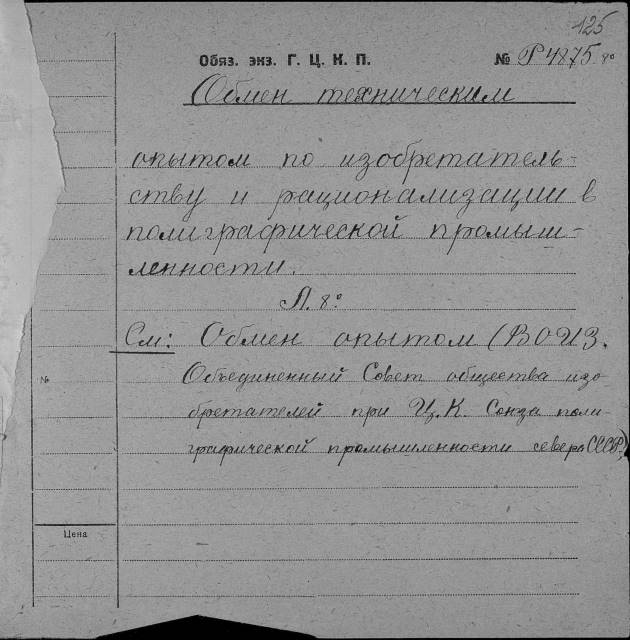 125
Обяз. экз. Г. Ц. К. П. № Р4875 8°
Обмен техническим
опытом по изобретатель-
ству и рационализации в
полиграфической промыш-
ленности.
Л. 8°
См: Обмен опытом (ВОИЗ.
№ Объединенный Совет общества изо-
бретателей при Ц.К. Союза поли-
графической промышленности севера СССР)
Цена